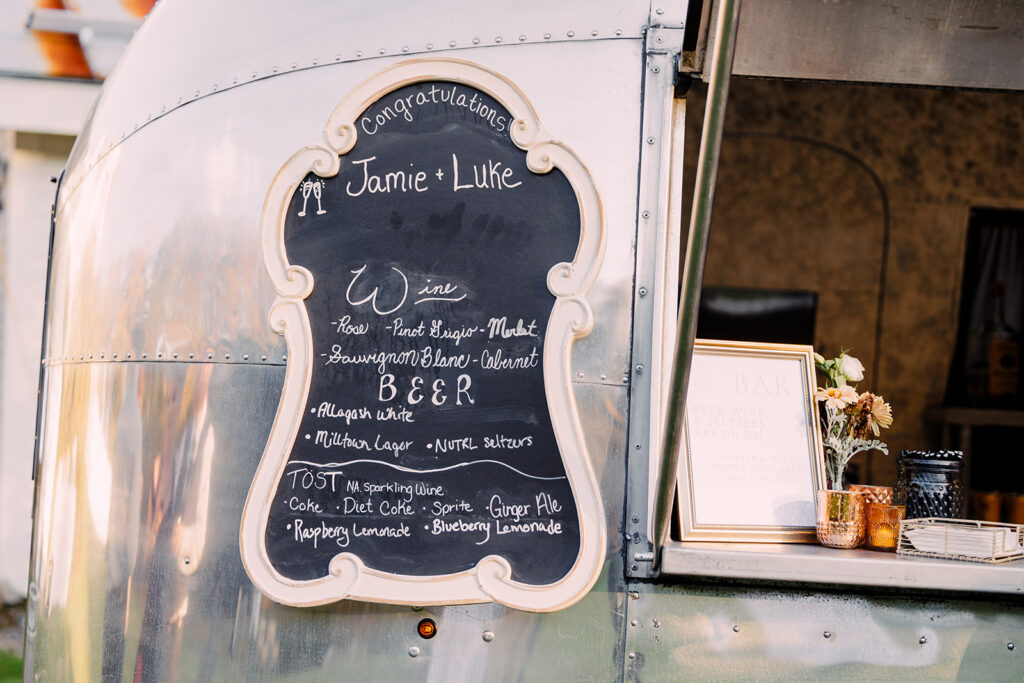 Congratulations!
Jamie + Luke
Wine
-Rose -Pinot Grigio -Merlot
-Sauvignon Blanc -Cabernet
BEER
•Allagash White
•Milltown Lager •NUTRL Seltzers
TÖST NA. Sparkling Wine
•Coke •Diet Coke •Sprite •Ginger Ale
•Raspberry Lemonade •Blueberry Lemonade
BAR
BEER, WINE,
& SELTZERS
ARE ON US!
SPIRITS & MIXED
DRINKS AVAILABLE
FOR PURCHASE